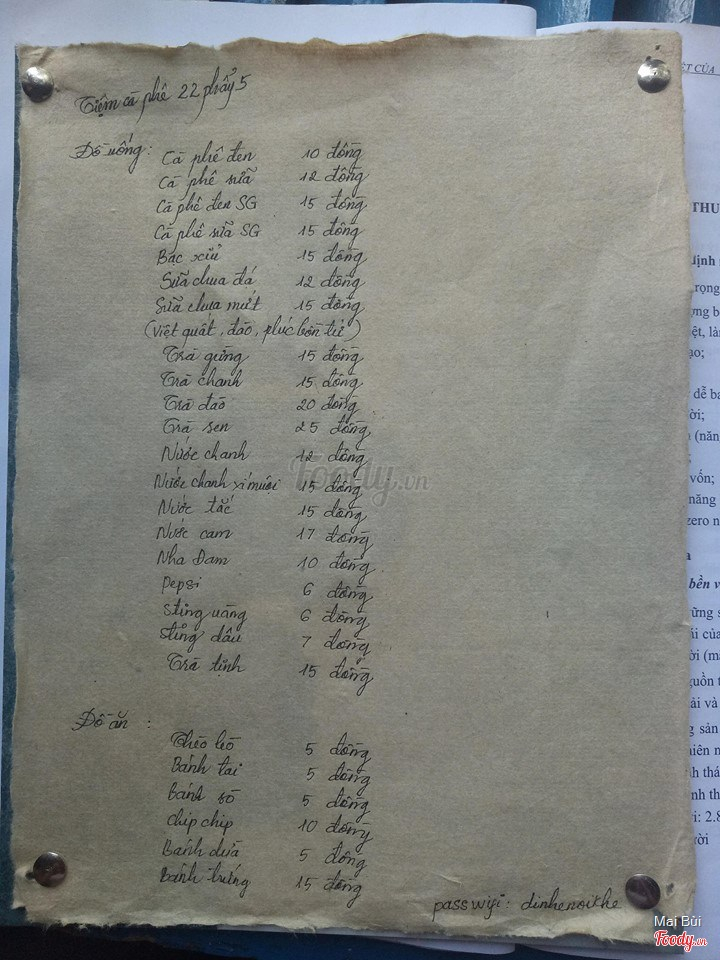 Tiệm cà phê 22 phẩy 5
Đồ uống:
Cà phê đen 10 đồng
Cà phê sữa 12 đồng
Cà phê đen SG 15 đồng
Cà phê sữa SG 15 đồng
Bạc xỉu 15 đồng
Sữa chua đá 12 đồng
Sữa chua mứt 15 đồng
(Việt quất, đào, phúc bồn tử)
Trà gừng 15 đồng
Trà chanh 15 đồng
Trà đào 20 đồng
Trà sen 25 đồng
Nước chanh 12 đồng
Nước chanh xí muội 15 đồng
Nước tắc 15 đồng
Nước cam 17 đồng
Nha Đam 10 đồng
Pepsi 6 đồng
Sting vàng 6 đồng
Sting dâu 7 đồng
Trà tĩnh 15 đồng
Đồ ăn:
Chèo lèo 5 đồng
Bánh tai 5 đồng
Bánh sò 5 đồng
Chip chip 10 đồng
Bánh dừa 5 đồng
Bánh tráng 15 đồng
pass wifi: dinhenoikhe
Foody.vn
Mai Bùi
Foody.vn
ỆT CỦA
THU
định
rọng
ệt, là
ạo;
dễ ba
ời;
(năn
vốn;
năng
zero n
bền v
ững s
ải của
ời (m
guồn t
ài và
g sản
iên n
nh thá
nh th
i: 2.8
rời